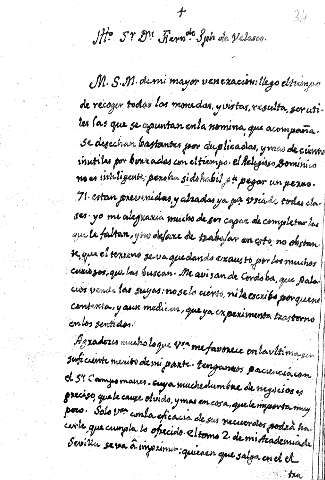 +
Ill.mo S.r D.n Fern.do Josè de Velasco.
M. S. M. de mi mayor veneracion: llego el tiempo
de recoger todas las monedas, y vistas, resulta, ser uti-
les las que se apuntan en la nomina, que acompaña.
se desechan bastantes por duplicadas, y mas de ciento
inutiles por borradas con el tiempo. el Religioso Dominico
no es inteligente; pero ha sido habil p.a pegar un petardo.
71. estan prevenidas, y alzadas ya p.a Vsia de todas cla-
ses. yo me alegraria mucho de ser capaz de completar las
que le faltan, y no dejare de trabajar en esto, no obstan-
te, que el terreno se va quedando exausto por los muchos
curiosos, que las buscan. Me avisan de Cordoba, que Pala-
cios vende las suyas: no se lo cierto, ni le escribo porque no
contexta, y aun me dicen, que ya experimenta trastorno
en los sentidos.
Agradezco mucho lo que V.S. me favorece en la ultima, sin
suficiente merito de mi parte. tengamos paciencia con
el S.r Campomanes. cuya muchedumbre de negocios es
preciso, que le cause olvido, y mas en cosa, que le importa muy
poco. Solo V.S. con la eficacia de sus recuerdos podrà ha-
cerle, que cumpla lo ofrecido. el tomo 2 de mi Academia de
Sevilla se va à imprimir: quieren que salga en el